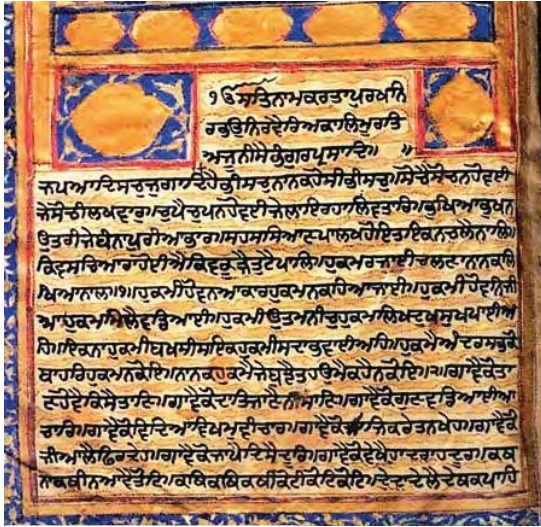 ੴਸਤਿਨਾਮੁਕਰਤਾਪੁਰਖੁਨਿ
ਰਭਉਨਿਰਵੈਰੁਅਕਾਲਮੂਰਤਿ
ਅਜੂਨੀਸੈਭੰਗੁਰਪ੍ਰਸਾਦਿ॥ ॥
ਜਪੁਆਦਿਸਚੁਜੁਗਾਦਿਹੈਭੀਸਚੁਨਾਨਕਹੋਸੀਭੀਸਚੁ॥ਸੋਚੈਸੋਚਨਹੋਵਈ
ਜੇਸੋਚੀਲਖਵਾਰ॥ਚੁਪੈਚੁਪਨਹੋਵਈਜੇਲਾਇਰਹਾਲਿਵਤਾਰ॥ਭੁਖਿਆਭੁਖਨ
ਉਤਰੀਜੇਬੰਨਾਪੁਰੀਆਭਾਰ॥ਸਹਸਸਿਆਣਪਾਲਖਹੋਇਤਇਕਨਚਲੈਨਾਲਿ॥
ਕਿਵਸਚਿਆਰਾਹੋਈਐਕਿਵਕੂੜੈਤੁਟੈਪਾਲਿ॥ਹੁਕਮਰਜਾਈਚਲਣਾਨਾਨਕਲਿ
ਖਿਆਨਾਲਿ॥੧॥ਹੁਕਮੀਹੋਵਨਆਕਾਰਹੁਕਮਨਕਹਿਆਜਾਈ॥ਹੁਕਮੀਹੋਵਨਿਜੀ
ਅਹੁਕਮਮਿਲੈਵਡਿਆਈ॥ਹੁਕਮੀਉਤਮਨੀਚੁਹੁਕਮਲਿਖਦੁਖਸੁਖਪਾਈਅ
ਹਿ॥ਇਕਨਾਹੁਕਮੀਬਖਸੀਸਇਕਹੁਕਮੀਸਦਾਭਵਾਈਅਹਿ॥ਹੁਕਮੈਅੰਦਰਸਭਕੋ
ਬਾਹਰਿਹੁਕਮਨਕੋਇ॥ਨਾਨਕਹੁਕਮੈਜੇਬੁਝੈਤਹਉਮੈਕਹੈਨਕੋਇ॥੨॥ਗਾਵੈਕੋਤਾ
ਣਹੋਵੈਕਿਸੈਤਾਣਿ॥ਗਾਵੈਕੋਦਾਤਿਜਾਣੈਨੀਸਾਣਿ॥ਗਾਵੈਕੋਗੁਣਵਡਿਆਈਆ
ਚਾਰ॥ਗਾਵੈਕੋਵਿਦਿਆਵਿਖਮਵੀਚਾਰ॥ਗਾਵੈਕੋਸਾਜਿਕਰੇਤਨਖੇਹ॥ਗਾਵੈਕੋ
ਜੀਅਲੈਫਿਰਦੇਹ॥ਗਾਵੈਕੋਜਾਪੈਦਿਸੈਦੂਰਿ॥ਗਾਵੈਕੋਵੇਖੈਹਾਦਰਾਹਦੂਰ॥ਕਥ
ਨਾਕਥੀਨਆਵੈਤੋਟਿ॥ਕਥਿਕਥਿਕਥੀਕੋਟੀਕੋਟਿਕੋਟਿ॥ਦੇਦਾਦੇਲੈਦੇਥਕਪਾਹਿ